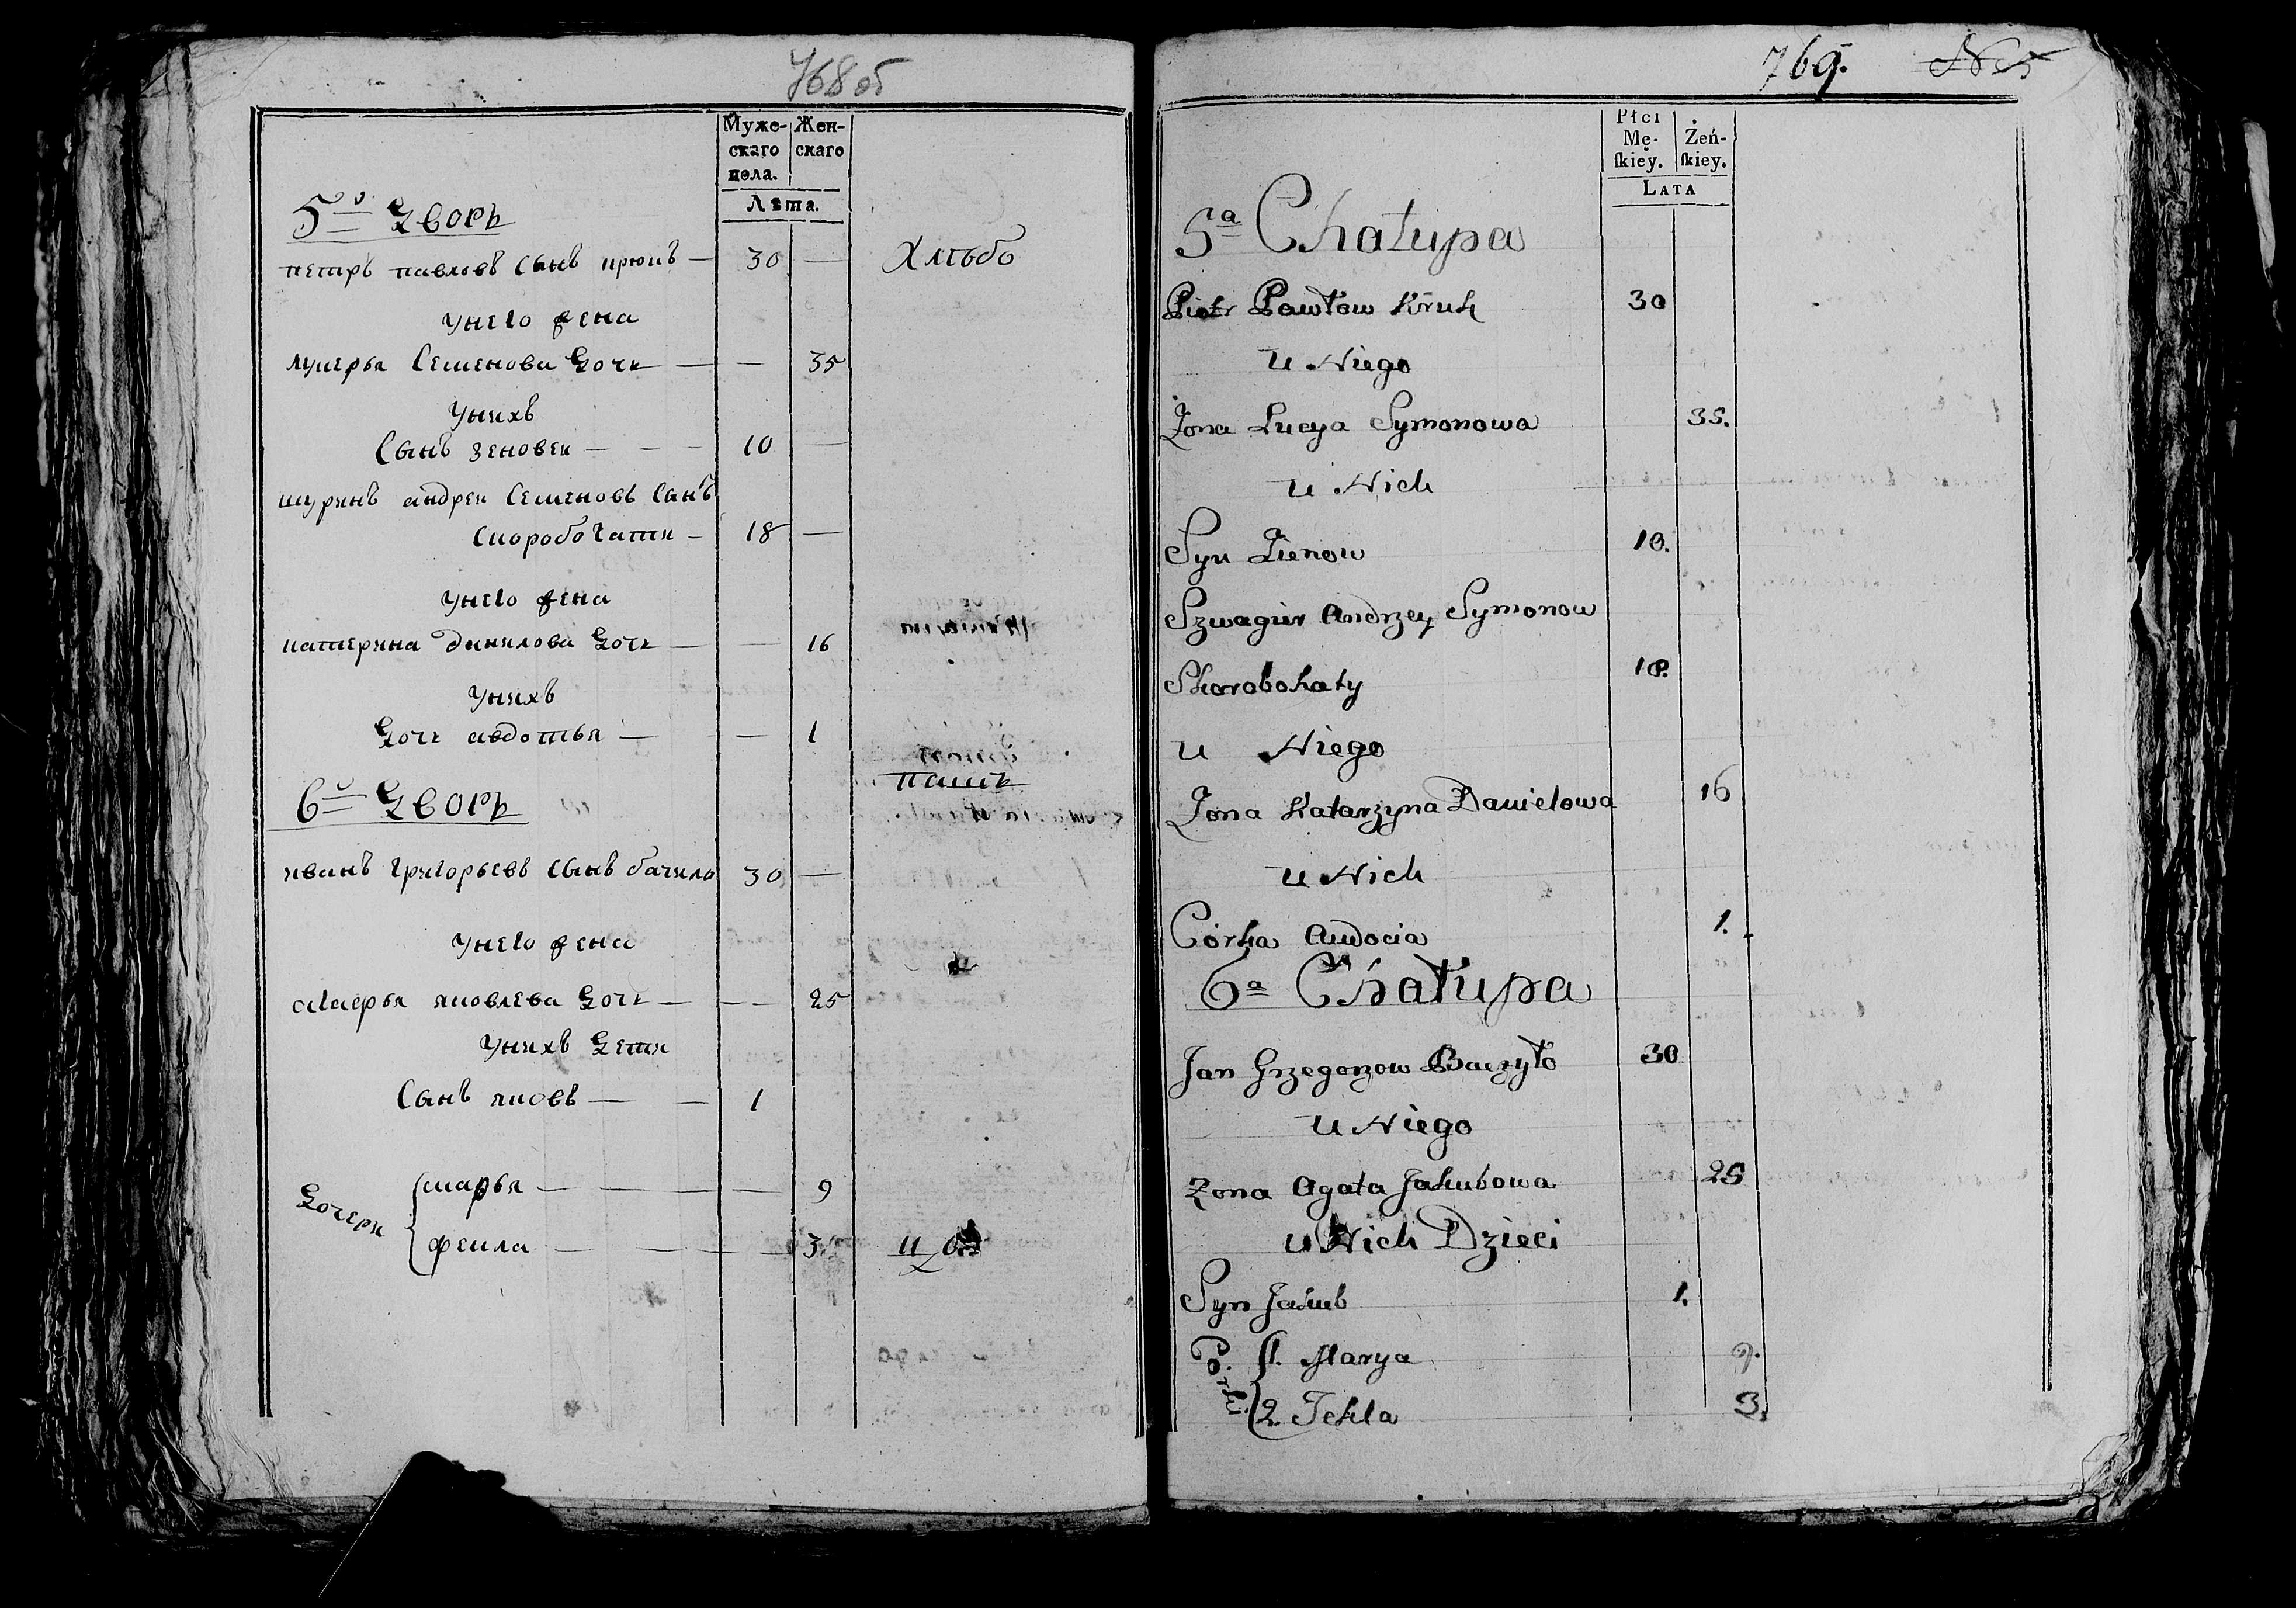 768 об
Муже-
скаго
пола.
Жен-
скаго
Лѣта.
5й Дворъ
петръ павловъ сынъ крюкъ — 30 —
Хлѣбо
унего жена
лукерья Семенова дочь — — 35
унихъ
Сынъ зеновеи — — — 10 —
шуринъ андреи Семеновъ Сынъ
Скоробогатии — 18 —
унего жена
катерина данилова дочь — — 16
унихъ
дочь авдотья — — 1
паш
6й Дворъ
иванъ григорьевъ Сынъ бачило 30 —
унего жена
яковлева дочь — — — 25
унихъ дети
Сынъ яковъ — — 1
дочери
марья — — — — 9
фекла — — — — 3
769.
Płci
Mę-
ſkiey.
Żeń-
ſkiey.
LATA
5a Chałupa
Piotr Pawłow Kruk 30
u Niego
Zona Lucya Symonowa 35.
u Nich
Syn Zienow 10.
Szwagier Andrzey Symonow
Skorobohaty 18.
u Niego
Zona Katarzyna Daniełowa 16
u Nich
Córka Audocia 1.
6a Chałupa
Jan Grzegorzow Baczyło 30
u Niego
Zona Agata Jakubowa 25
u Nich Dzieci
Syn Jakub 1.
Córki
1. Marya 9.
2. Tekla 3.